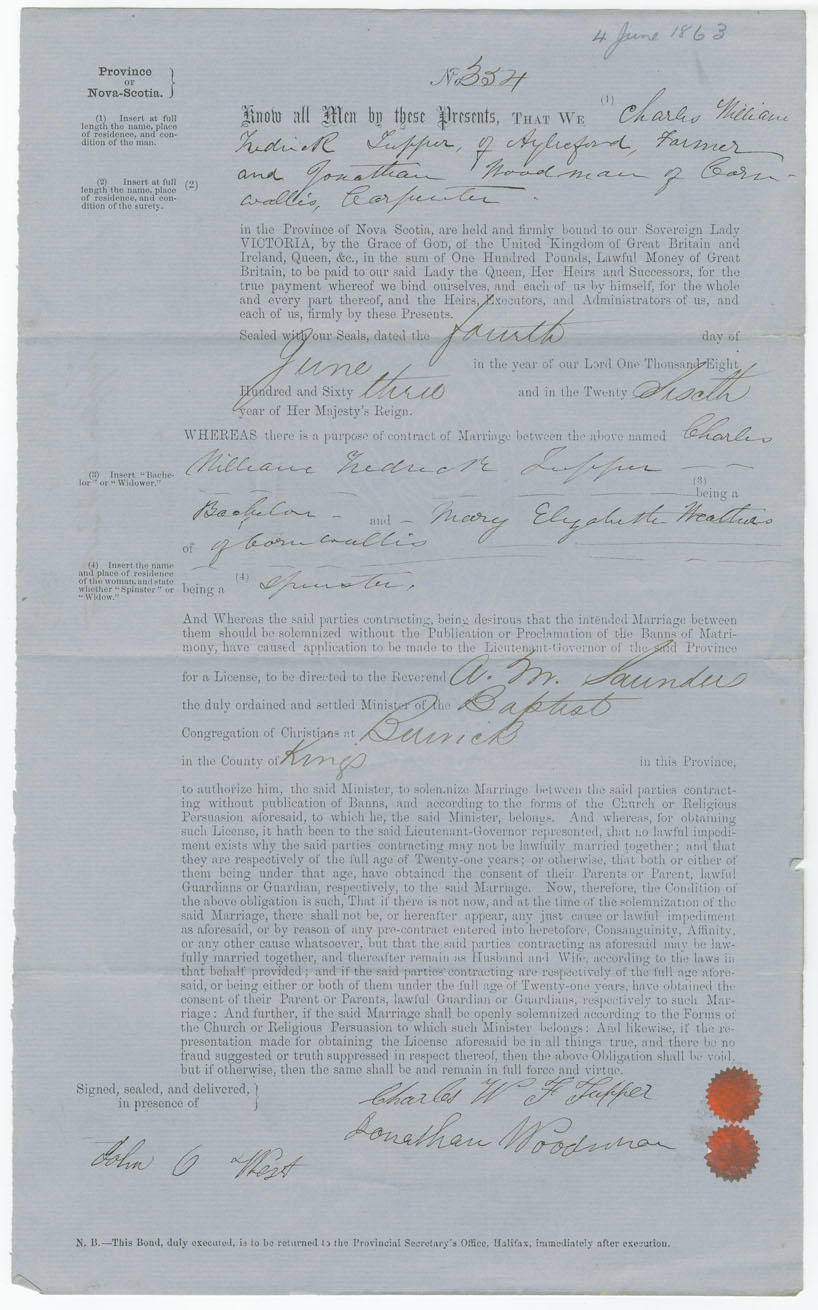 4 June 1863
Province
OF
Nova-Scotia.
No 554
(1) Insert at full
length the name, place
of residence, and con-
dition of the man.
Know all Men by these Presents, THAT WE (1) Charles William
Fredrick Tupper, of Aylesford, Farmer
(2) Insert at full
length the name, place
of residence, and con-
dition of the surety.
(2) and Jonathan Woodman of Corn-
wallis, Carpenter.
in the Province of Nova Scotia, are held and firmly bound to our Sovereign Lady
VICTORIA, by the Grace of GOD, of the United Kingdom of Great Britain and
Ireland, Queen, &c., in the sum of One Hundred Pounds, Lawful Money of Great
Britain, to be paid to our said Lady the Queen, Her Heirs and Successors, for the
true payment whereof we bind ourselves, and each of us by himself, for the whole
and every part thereof, and the Heirs, Executors, and Administrators of us, and
each of us, firmly by these Presents.
Sealed with our Seals, dated the fourth day of
June in the year of our Lord One Thousand Eight
Hundred and Sixty three and in the Twenty Sixth
year of Her Majesty's Reign.
WHEREAS there is a purpose of contract of Marriage between the above named Charles
William Fredrick Tupper
(3) Insert "Bache-
lor" or "Widower."
(3)
being a
Bachelor - and - Mary Elizabeth Weathers
of of Cornwallis
(4) Insert the name
and place of residence
of the woman, and state
whether "Spinster" or
"Widow."
being a (4) Spinster.
And Whereas the said parties contracting, being desirous that the intended Marriage between
them should be solemnized without the Publication or Proclamation of the Banns of Matri-
mony, have caused application to be made to the Lieutenant-Governor of the said Province
for a License, to be directed to the Reverend A. M. Saunders
the duly ordained and settled Minister of the Baptist
Congregation of Christians at Berwick
in the County of Kings in this Province,
to authorize him, the said Minister, to solemnize Marriage between the said parties contract-
ing without publication of Banns, and according to the forms of the Church or Religious
Persuasion aforesaid, to which he, the said Minister, belongs. And whereas, for obtaining
such License, it hath been to the said Lieutenant-Governor represented, that no lawful impedi-
ment exists why the said parties contracting may not be lawfully married together; and that
they are respectively of the full age of Twenty-one years; or otherwise, that both or either of
them being under that age, have obtained the consent of their Parents or Parent, lawful
Guardians or Guardian, respectively, to the said Marriage. Now, therefore, the Condition of
the above obligation is such, That if there is not now, and at the time of the solemnization of the
said Marriage, there shall not be, or hereafter appear, any just cause or lawful impediment
as aforesaid, or by reason of any pre-contract entered into heretofore, Consanguinity, Affinity,
or any other cause whatsoever, but that the said parties contracting as aforesaid may be law-
fully married together, and thereafter remain as Husband and Wife, according to the laws in
that behalf provided; and if the said parties contracting are respectively of the full age afore-
said, or being either or both of them under the full age of Twenty-one years, have obtained the
consent of their Parent or Parents, lawful Guardian or Guardians, respectively to such Mar-
riage: And further, if the said Marriage shall be openly solemnized according to the Forms of
the Church or Religious Persuasion to which such Minister belongs: And likewise, if the re-
presentation made for obtaining the License aforesaid be in all things true, and there be no
fraud suggested or truth suppressed in respect thereof, then the above Obligation shall be void,
but if otherwise, then the same shall be and remain in full force and virtue.
Signed, sealed, and delivered,
in presence of
Charles W F Tupper
Jonathan Woodman
John O West
N. B.—This Bond, duly executed, is to be returned to the Provincial Secretary's Office, Halifax, immediately after execution.